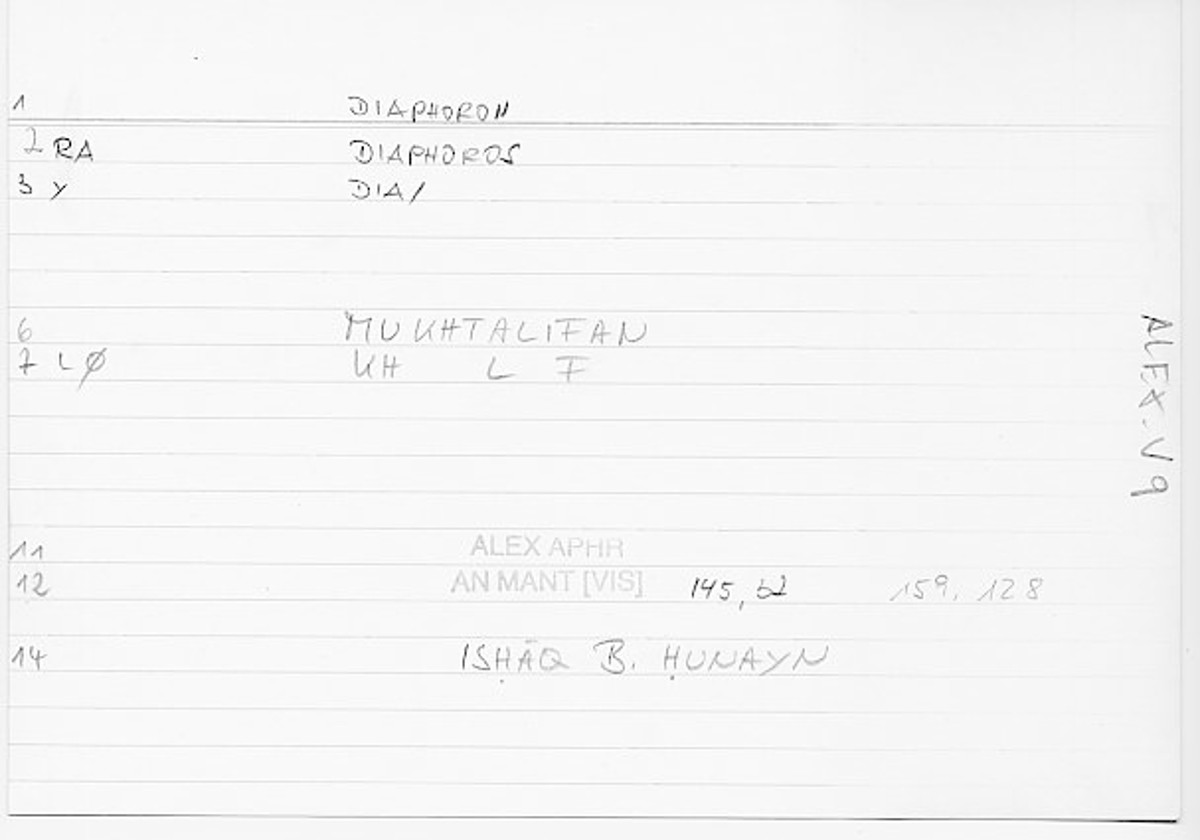 1 DIAPHORON
2 RA DIAPHOROS
3 Y DIA/
6 MUKHTALIFAN
7 LØ KH L F
11 ALEX APHR
12 AN MANT [VIS] 145, 159, 128
14 ISḤĀQ B. ḤUNAYN
ALEX. V 9